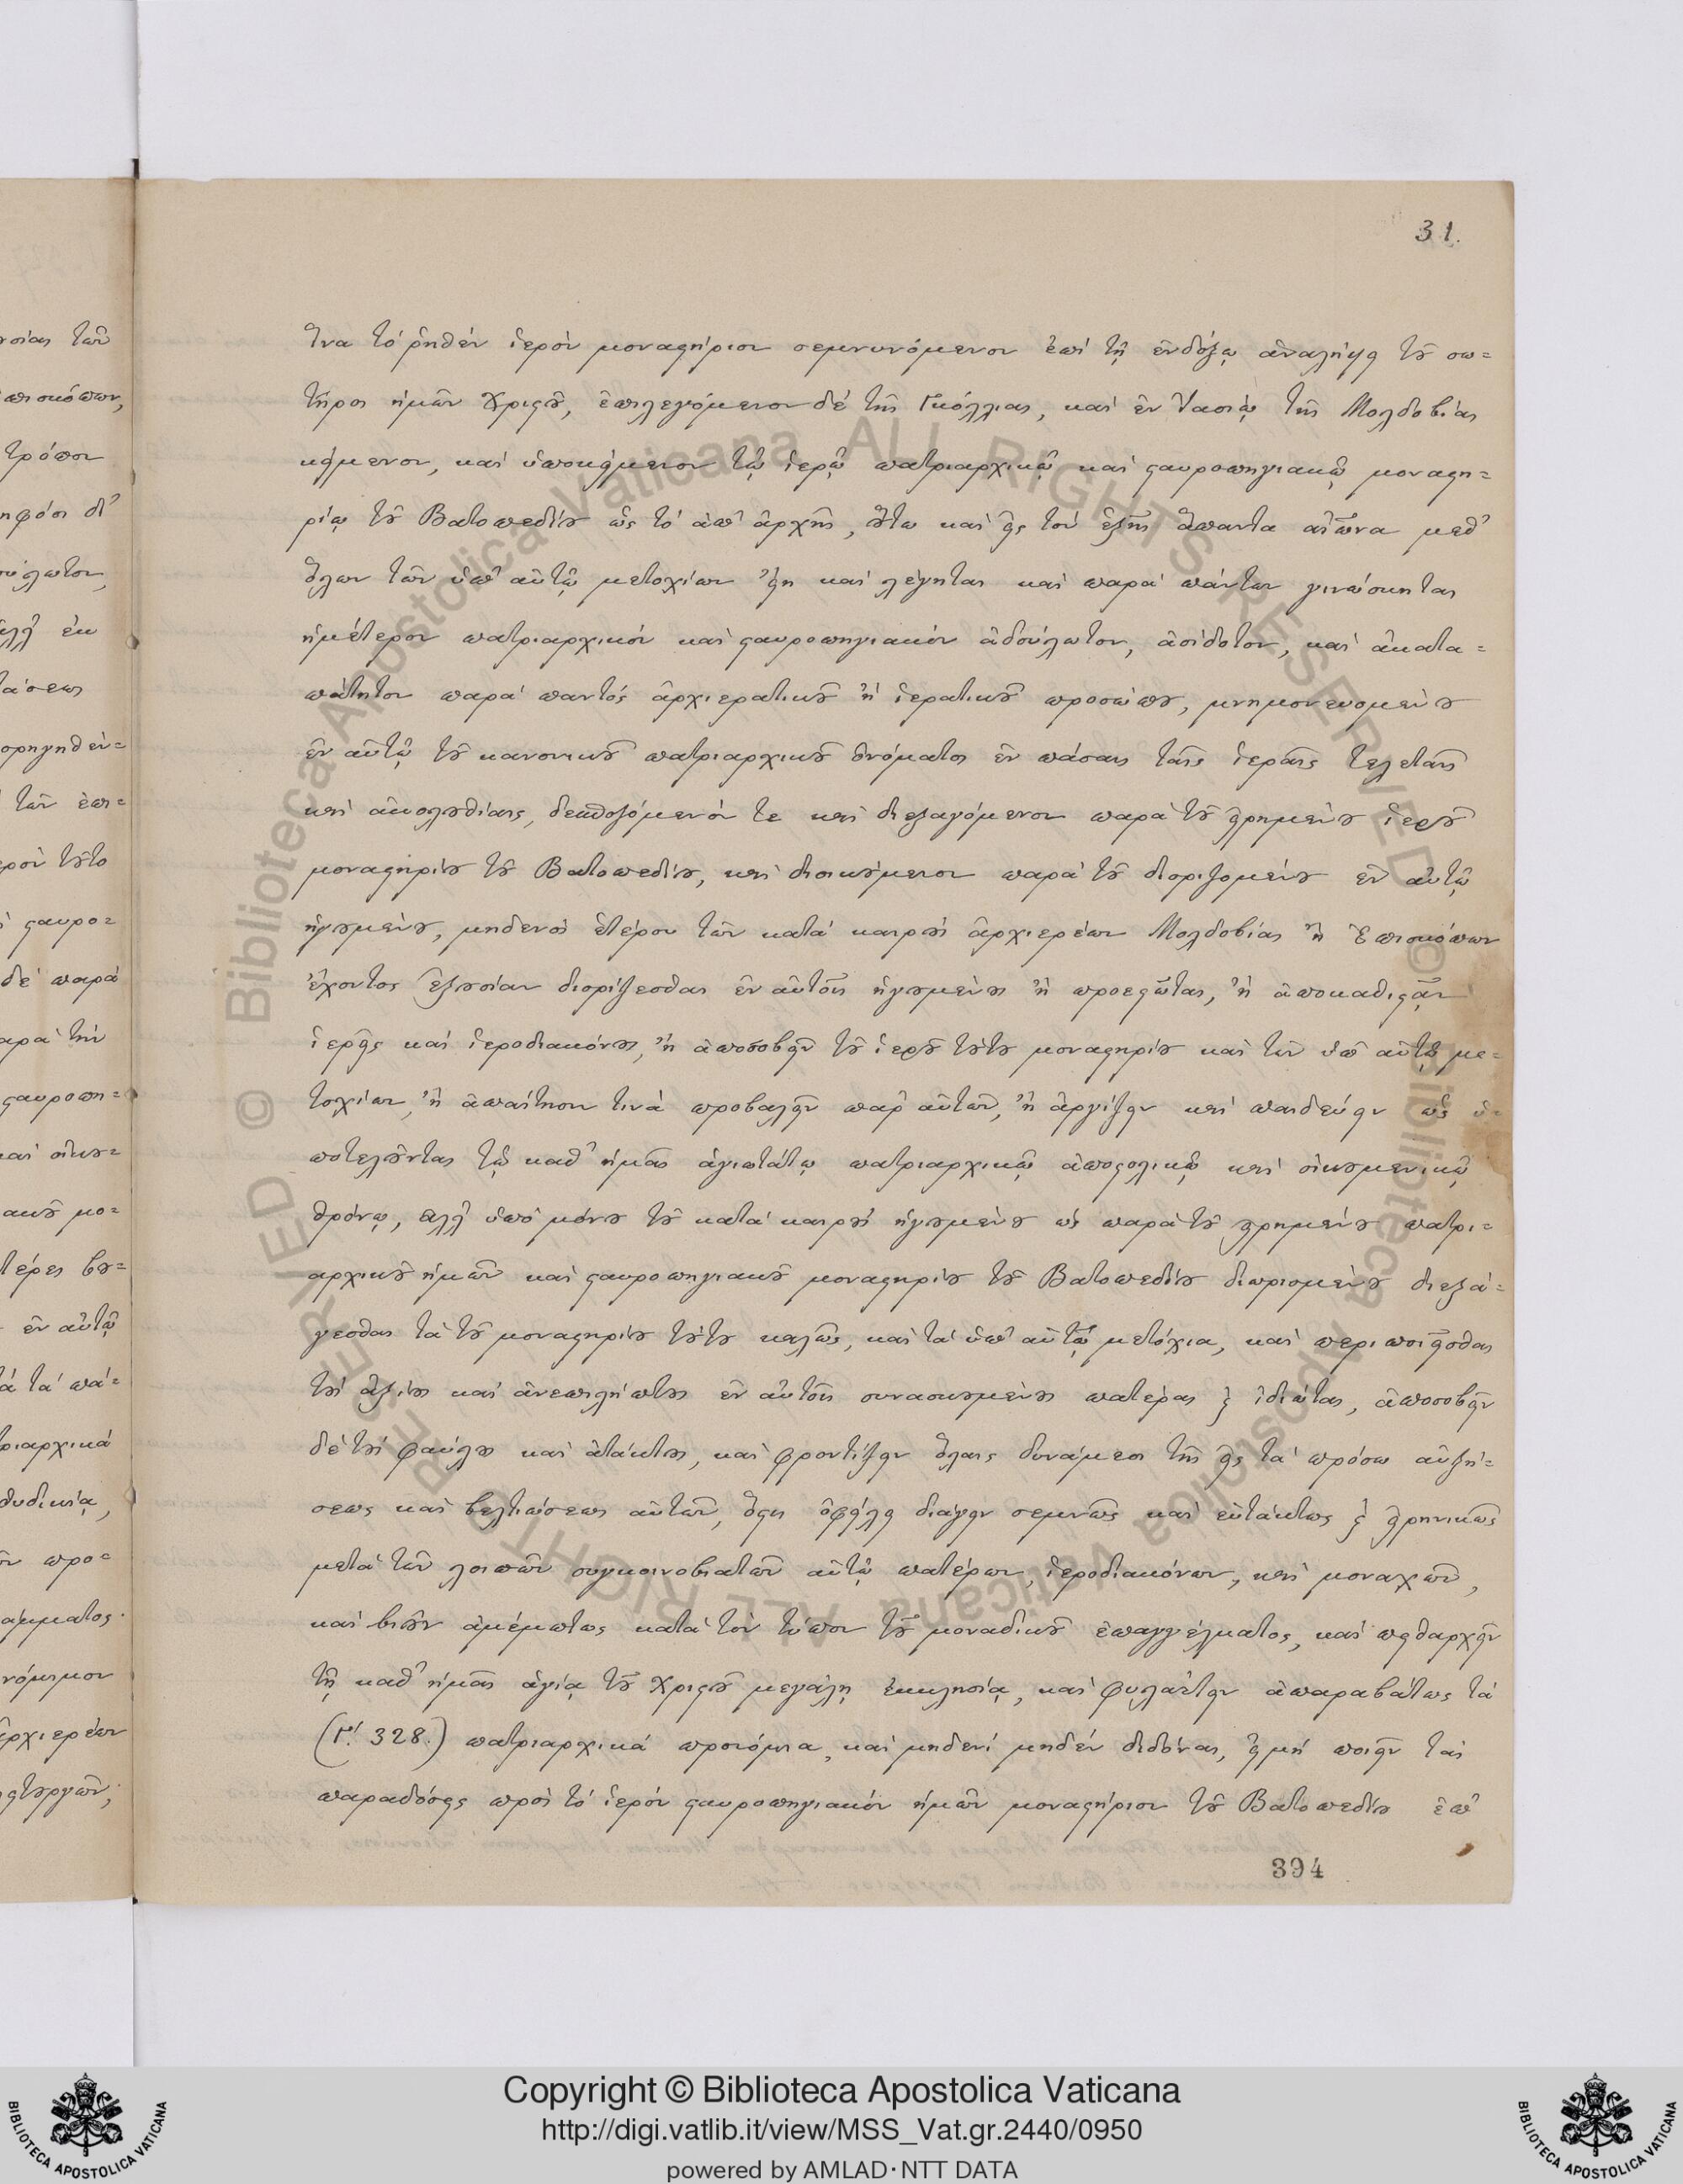 31.
ἵνα τὸ ῥηθὲν ἱερὸν μοναστήριον σεμνυνόμενον ἐπὶ τῇ ἐνδόξῳ ἀναλήψει τοῦ σω=
τῆρος ἡμῶν Χριστοῦ, ἐπιλεγόμενον δὲ τῆς Γκόλλιας, καὶ ἐν Ἰασίῳ τῆς Μολδοβίας
κείμενον, καὶ ὑποκείμενον τῷ ἱερῷ πατριαρχικῷ καὶ σταυροπηγιακῷ μοναστη=
ρίῳ τοῦ Βατοπεδίου ὡς τὸ ἀπ' ἀρχῆς, οὕτω καὶ εἰς τὸν ἑξῆς ἅπαντα αἰῶνα μεθ'
ὅλων τῶν ὑπ' αὐτῷ μετοχίων ᾖ καὶ λέγηται καὶ παρὰ πάντων γινώσκηται
ἡμέτερον πατριαρχικὸν καὶ σταυροπηγιακὸν ἀδούλωτον, ἀσίδοτον, καὶ ἀκατα=
πάτητον παρὰ παντὸς ἀρχιερατικοῦ ἢ ἱερατικοῦ προσώπου, μνημονευομένου
ἐν αὐτῷ τοῦ κανονικοῦ πατριαρχικοῦ ὀνόματος ἐν πάσαις ταῖς ἱεραῖς τελεταῖς
καὶ ἀκολουθίαις, δεσποζόμενόν τε καὶ διεξαγόμενον παρὰ τοῦ εἰρημένου ἱεροῦ
μοναστηρίου τοῦ Βατοπεδίου, καὶ διοικούμενον παρὰ τοῦ διοριζομένου ἐν αὐτῷ
ἡγουμένου, μηδενὸς ἑτέρου τῶν κατὰ καιροὺς ἀρχιερέων Μολδοβίας ἢ Ἐπισκόπων
ἔχοντος ἐξουσίαν διορίζεσθαι ἐν αὐτοῖς ἡγουμένους ἢ προεστῶτας, ἢ ἀποκαθιστᾷν
ἱερεῖς καὶ ἱεροδιακόνους, ἢ ἀποσοβεῖν τοῦ ἱεροῦ τούτου μοναστηρίου καὶ τῶν ὑπ' αὐτῷ με=
τοχίων, ἢ ἀπαίτησιν τινὰ προβαλεῖν παρ' αὐτῶν, ἢ ἀργίζειν καὶ παιδεύειν ὡς ὑ=
ποτελοῦντας τῷ καθ' ἡμᾶς ἁγιωτάτῳ πατριαρχικῷ ἀποστολικῷ καὶ οἰκουμενικῷ
θρόνῳ, ἀλλ' ὑπὸ μόνου τοῦ κατὰ καιροὺς ἡγουμένου ὡς παρὰ τοῦ εἰρημένου πατρι=
αρχικοῦ ἡμῶν καὶ σταυροπηγιακοῦ μοναστηρίου τοῦ Βατοπεδίου διωρισμένου διεξά=
γεσθαι τὰ τοῦ μοναστηρίου τούτου καλῶς, καὶ τὰ ὑπ' αὐτῷ μετόχια, καὶ περιποιεῖσθαι
τοὺς ἀξίους καὶ ἀνεπιλήπτους ἐν αὐτοῖς συνασκουμένους πατέρας καὶ ἰδιώτας, ἀποσοβεῖν
δὲ τοὺς φαύλους καὶ ἀτάκτους, καὶ φροντίζειν ὅλαις δυνάμεσι τῆς εἰς τὰ πρόσω αὐξή=
σεως καὶ βελτιώσεως αὐτῶν, ὅστις ὀφείλει διάγειν σεμνῶς καὶ εὐτάκτως καὶ εἰρηνικῶς
μετὰ τῶν λοιπῶν συγκοινοβιατῶν αὐτῷ πατέρων, ἱεροδιακόνων, καὶ μοναχῶν,
καὶ βιοῦν ἀμέμπτως κατὰ τὸν τύπον τοῦ μοναδικοῦ ἐπαγγέλματος, καὶ πειθαρχεῖν
τῇ καθ' ἡμᾶς ἁγίᾳ τοῦ Χριστοῦ μεγάλῃ ἐκκλησίᾳ, καὶ φυλάττειν ἀπαραβάτως τὰ
(Γ'. 328.) πατριαρχικὰ προνόμια, καὶ μηδενὶ μηδὲν διδόναι, εἰ μὴ ποιεῖν τὰς
παραδόσεις πρὸς τὸ ἱερὸν σταυροπηγιακὸν ἡμῶν μοναστήριον τοῦ Βατοπεδίου ἐπ'
394
Copyright © Biblioteca Apostolica Vaticana
http://digi.vatlib.it/view/MSS_Vat.gr.2440/0950
powered by AMLAD·NTT DATA